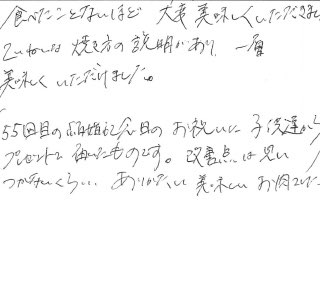 食べたことないほど 大変美味しくいただきま
ていねいな焼き方の説明があり、一層
美味しくいただけました。
55回目の結婚記念日のお祝いに子供達から
プレゼントで 届いたものです。改善点は思い
つかないくらい、ありがたい 美味しい お肉でした